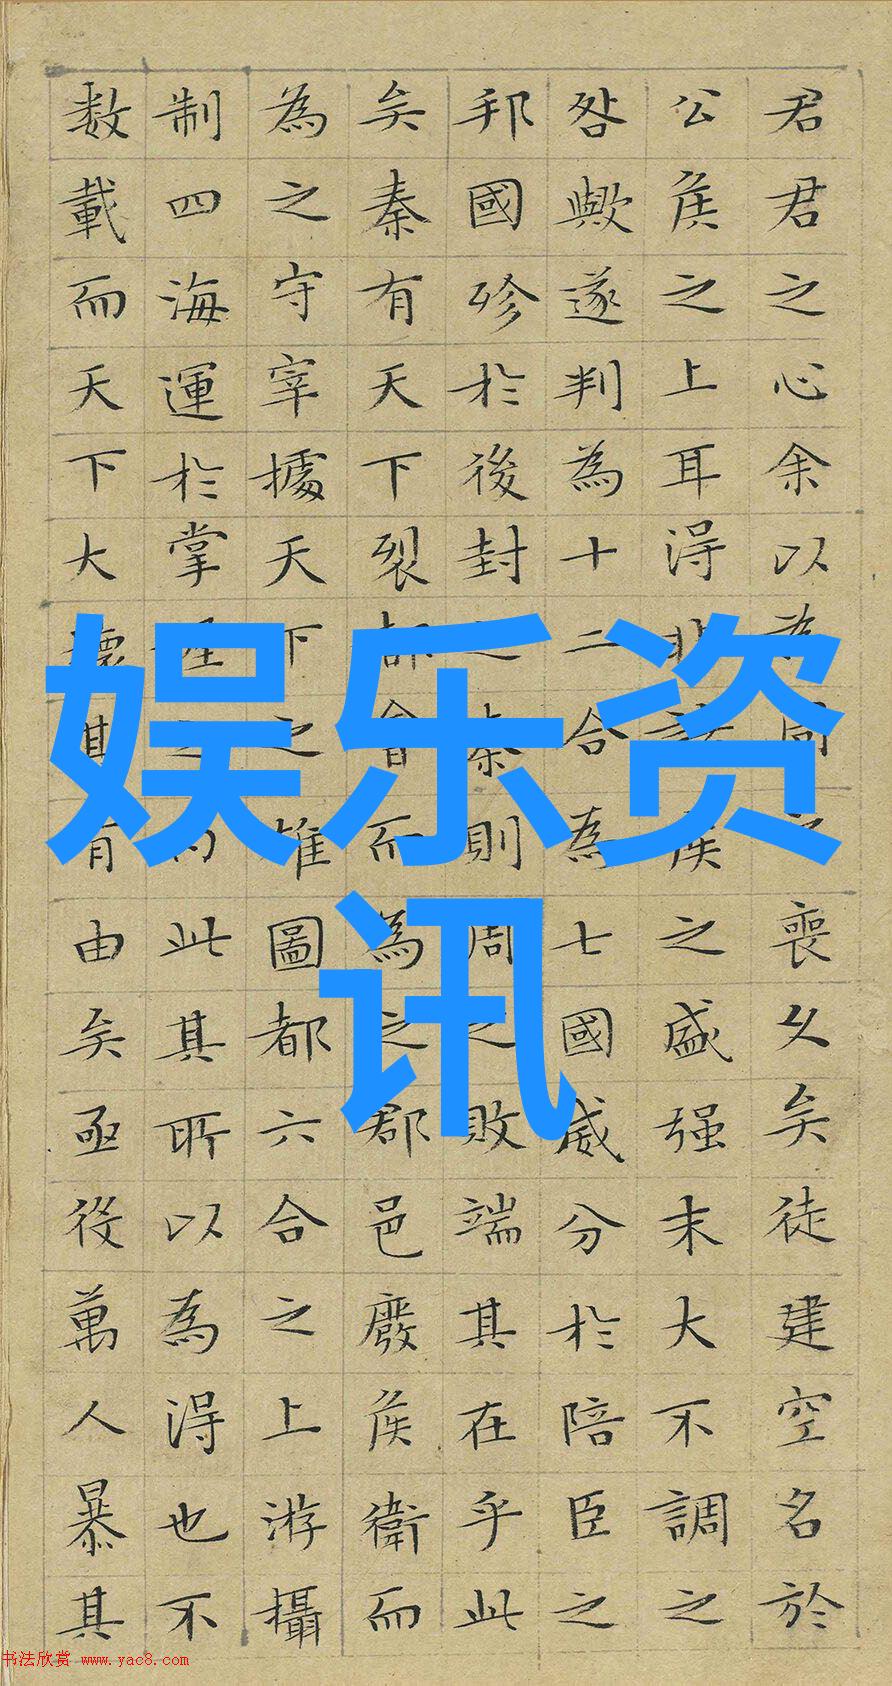 君君之心余以為周之喪久矣徒建空名於
公侯之上耳得非諸侯之盛强末大不調之
咎歟遂判為十二合為七國威分於陪臣之
邦國殄於後封之秦則周之敗端其在乎此
矣秦有天下裂都會而為之郡邑廢侯衛而
為之守宰據天下之雄圖都六合之上游攝
制四海運於掌握之内此其所以為得也不
数載而天下大壞其有由矣亟役萬人暴其
娱乐资
讯
书法欣赏 www.yac8.com